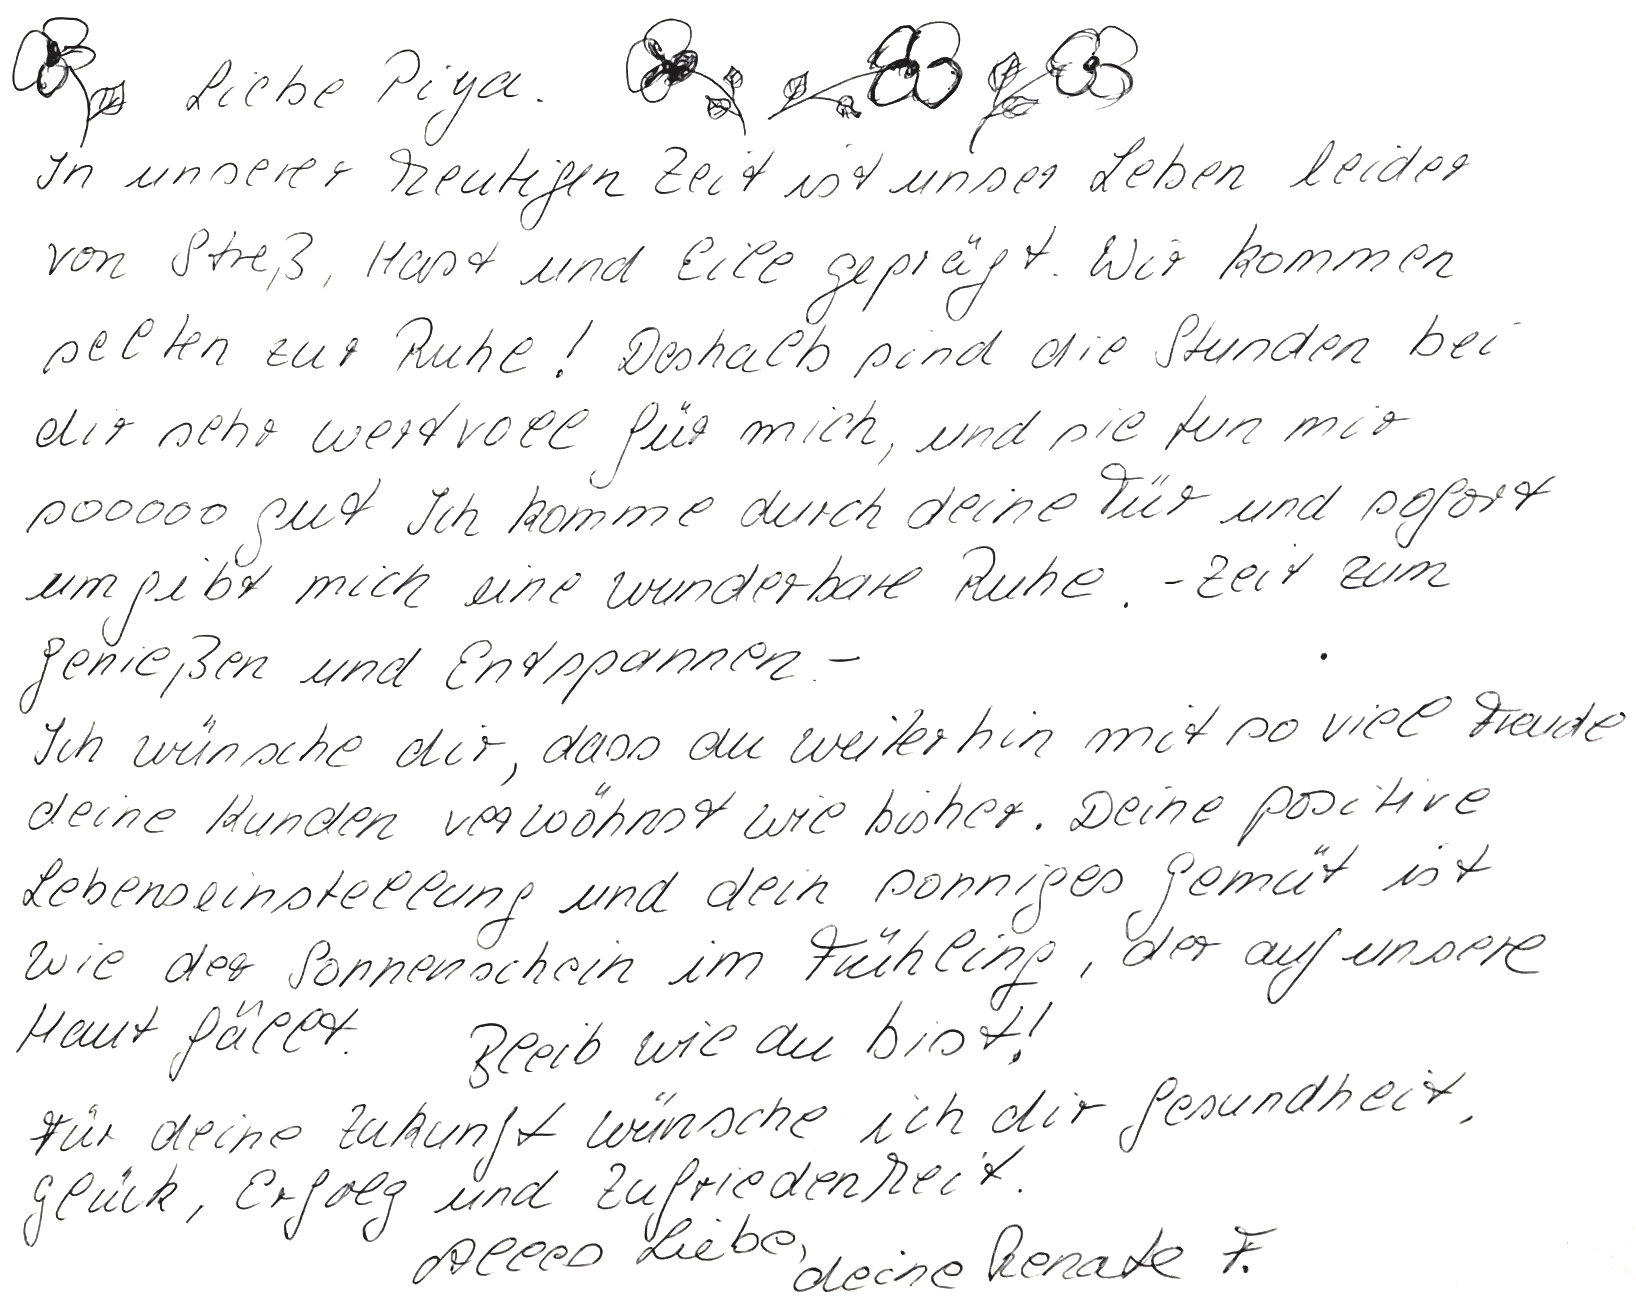 Liebe Piya.
In unserer heutigen Zeit ist unser Leben leider
von Streß, Hast und Eile geprägt. Wir kommen
selten zur Ruhe! Deshalb sind die Stunden bei
dir sehr wertvoll für mich, und sie tun mir
sooooo gut Ich komme durch deine Tür und sofort
umgibt mich eine wunderbare Ruhe. - Zeit zum
Genießen und Entspannen -
Ich wünsche dir, dass du weiterhin mit so viel Freude
deine Kunden verwöhnst wie bisher. Deine positive
Lebenseinstellung und dein sonniges Gemüt ist
wie der Sonnenschein im Frühling, der auf unsere
Haut fällt. Bleib wie du bist!
Für deine Zukunft wünsche ich dir Gesundheit,
Glück, Erfolg und Zufriedenheit.
Alles Liebe, deine Renate F.